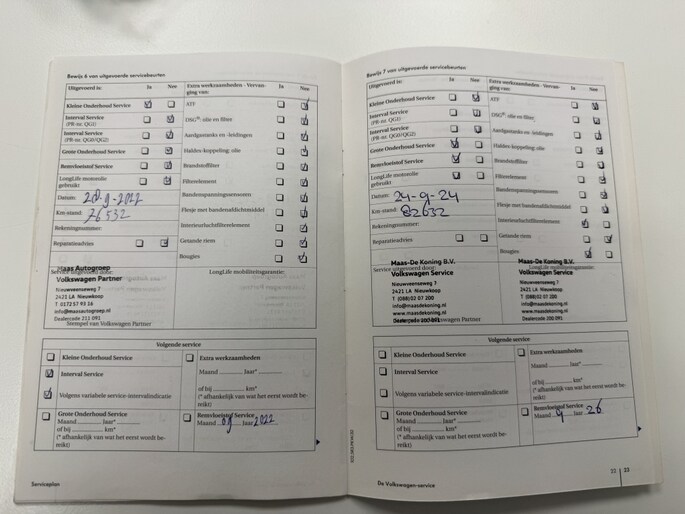 Bewijs 6 van uitgevoerde servicebeurten
Uitgevoerd is: Ja Nee
Kleine Onderhoud Service
Interval Service
(PR-nr. QG1)
Interval Service
(PR-nr. QG0/QG2)
Grote Onderhoud Service
Remvloeistof Service
LongLife motorolie
gebruikt
Datum: 28-9-2022
Km-stand: 76532
Rekeningnummer:
Reparatieadvies
Extra werkzaamheden - Vervan-
ging van: Ja Nee
ATF
DSG®: olie en filter
Aardgastanks en -leidingen
Haldex-koppeling: olie
Brandstoffilter
Filterelement
Bandenspanningssensoren
Flesje met bandenafdichtmiddel
Interieurluchtfilterelement
Getande riem
Bougies
Service uitgevoerd door: LongLife mobiliteitsgarantie:
Maas Autogroep
Volkswagen Partner
Nieuwveenseweg 7
2421 LA Nieuwkoop
T 0172 57 93 16
info@maasautogroep.nl
Dealercode 211 091
Stempel van Volkswagen Partner
Volgende service
Kleine Onderhoud Service
Interval Service
Volgens variabele service-intervalindicatie
Grote Onderhoud Service
Maand Jaar*
of bij km*
(* afhankelijk van wat het eerst wordt be-
reikt)
Extra werkzaamheden
Maand Jaar*
of bij km*
(* afhankelijk van wat het eerst wordt be-
reikt)
Remvloeistof Service
Maand 09 Jaar 2022
Serviceplan
Bewijs 7 van uitgevoerde servicebeurten
Uitgevoerd is: Ja Nee
Kleine Onderhoud Service
Interval Service
(PR-nr. QG1)
Interval Service
(PR-nr. QG0/QG2)
Grote Onderhoud Service
Remvloeistof Service
LongLife motorolie
gebruikt
Datum: 24-9-24
Km-stand: 82632
Rekeningnummer:
Reparatieadvies
Extra werkzaamheden - Vervan-
ging van: Ja Nee
ATF
DSG®: olie en filter
Aardgastanks en -leidingen
Haldex-koppeling: olie
Brandstoffilter
Filterelement
Bandenspanningssensoren
Flesje met bandenafdichtmiddel
Interieurluchtfilterelement
Getande riem
Bougies
Service uitgevoerd door: LongLife mobiliteitsgarantie:
Maas-De Koning B.V.
Volkswagen Service
Nieuwveenseweg 7
2421 LA Nieuwkoop
T (088) 02 07 200
info@maasdekoning.nl
www.maasdekoning.nl
Maas-De Koning B.V.
Volkswagen Service
Nieuwveenseweg 7
2421 LA Nieuwkoop
T (088) 02 07 200
info@maasdekoning.nl
www.maasdekoning.nl
Volgende service
Kleine Onderhoud Service
Interval Service
Volgens variabele service-intervalindicatie
Grote Onderhoud Service
Maand Jaar*
of bij km*
(* afhankelijk van wat het eerst wordt be-
reikt)
Extra werkzaamheden
Maand Jaar*
of bij km*
(* afhankelijk van wat het eerst wordt be-
reikt)
Remvloeistof Service
Maand 9 Jaar 26
De Volkswagen-service
22 23